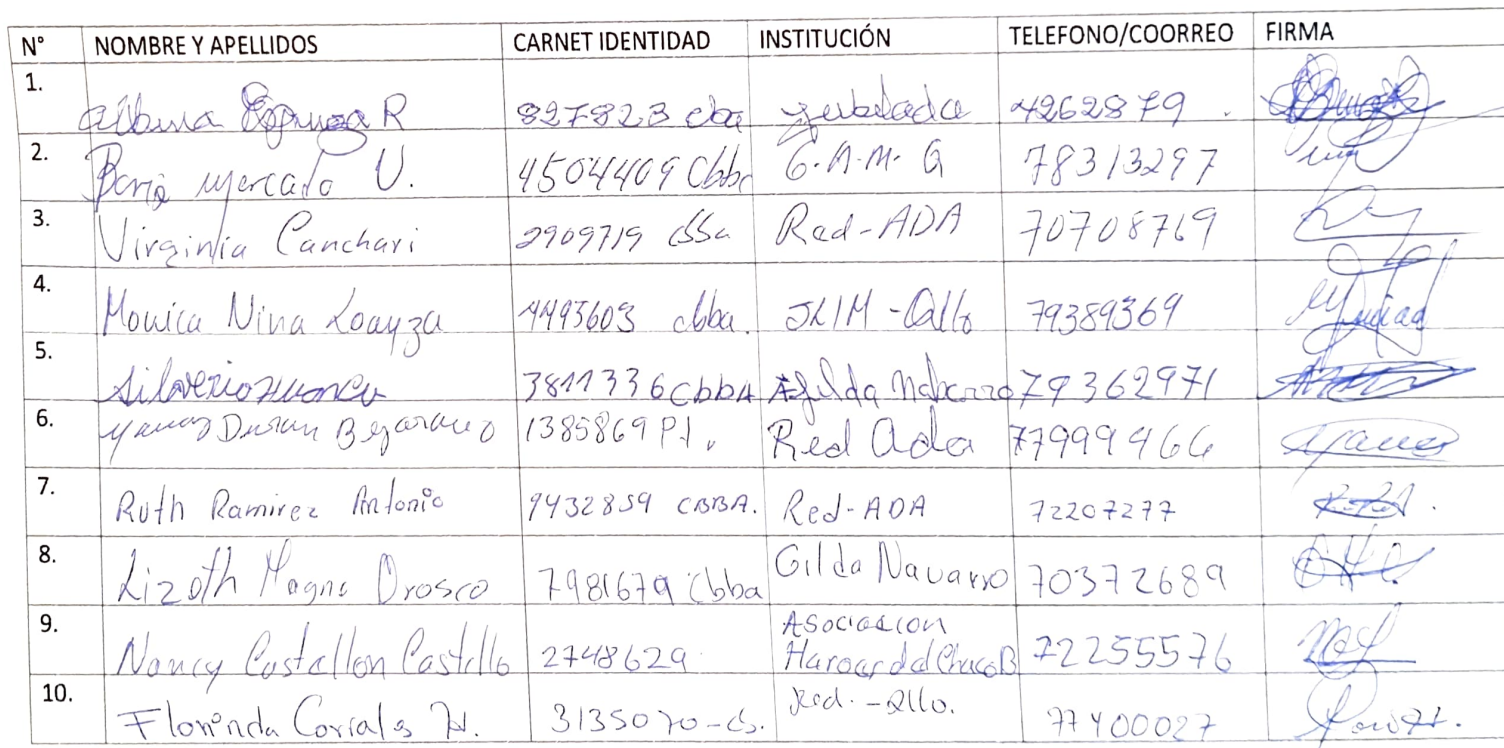 N° NOMBRE Y APELLIDOS CARNET IDENTIDAD INSTITUCIÓN TELEFONO/COORREO FIRMA
1. Albina Espinoza R 827823 cba jubilada 4262879
2. Mercado V. 4504409 Cbba G.A.M. Q 78313297
3. Virginia Canchari 2909719 Red-ADA 70708769
4. Monica Nina Loayza 4493603 cbba. SLIM - Qllo 79389369
5. Silverio Huanca 3811336 CbbA 79362971
6. Duran Bejarano 1385869 Pt. Red Ada 77999466
7. Ruth Ramirez Antonio 9432859 CBBA. Red-ADA 72207277
8. Lizeth Magne Orosco 7981679 Cbba Gilda Navarro 70372689
9. Nancy Castellon Castello 2748629 Asociacion
del Chaco B 72255576
10. Florinda Corrales H. 3135070-cb. Red.-Qllo. 77400027